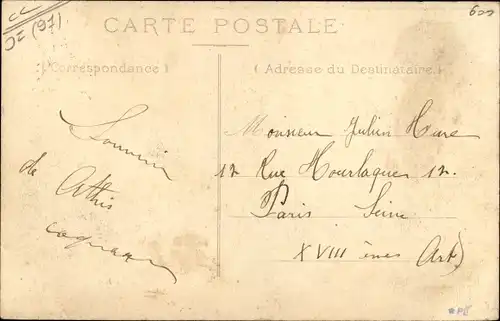 CARTE POSTALE
( Correspondance )
( Adresse du Destinataire )
Souvenir
de Athis
Monsieur Julien Hure
12 Rue Hourlaques 12.
Paris Seine
XVIII èmes Art)
(97)
600